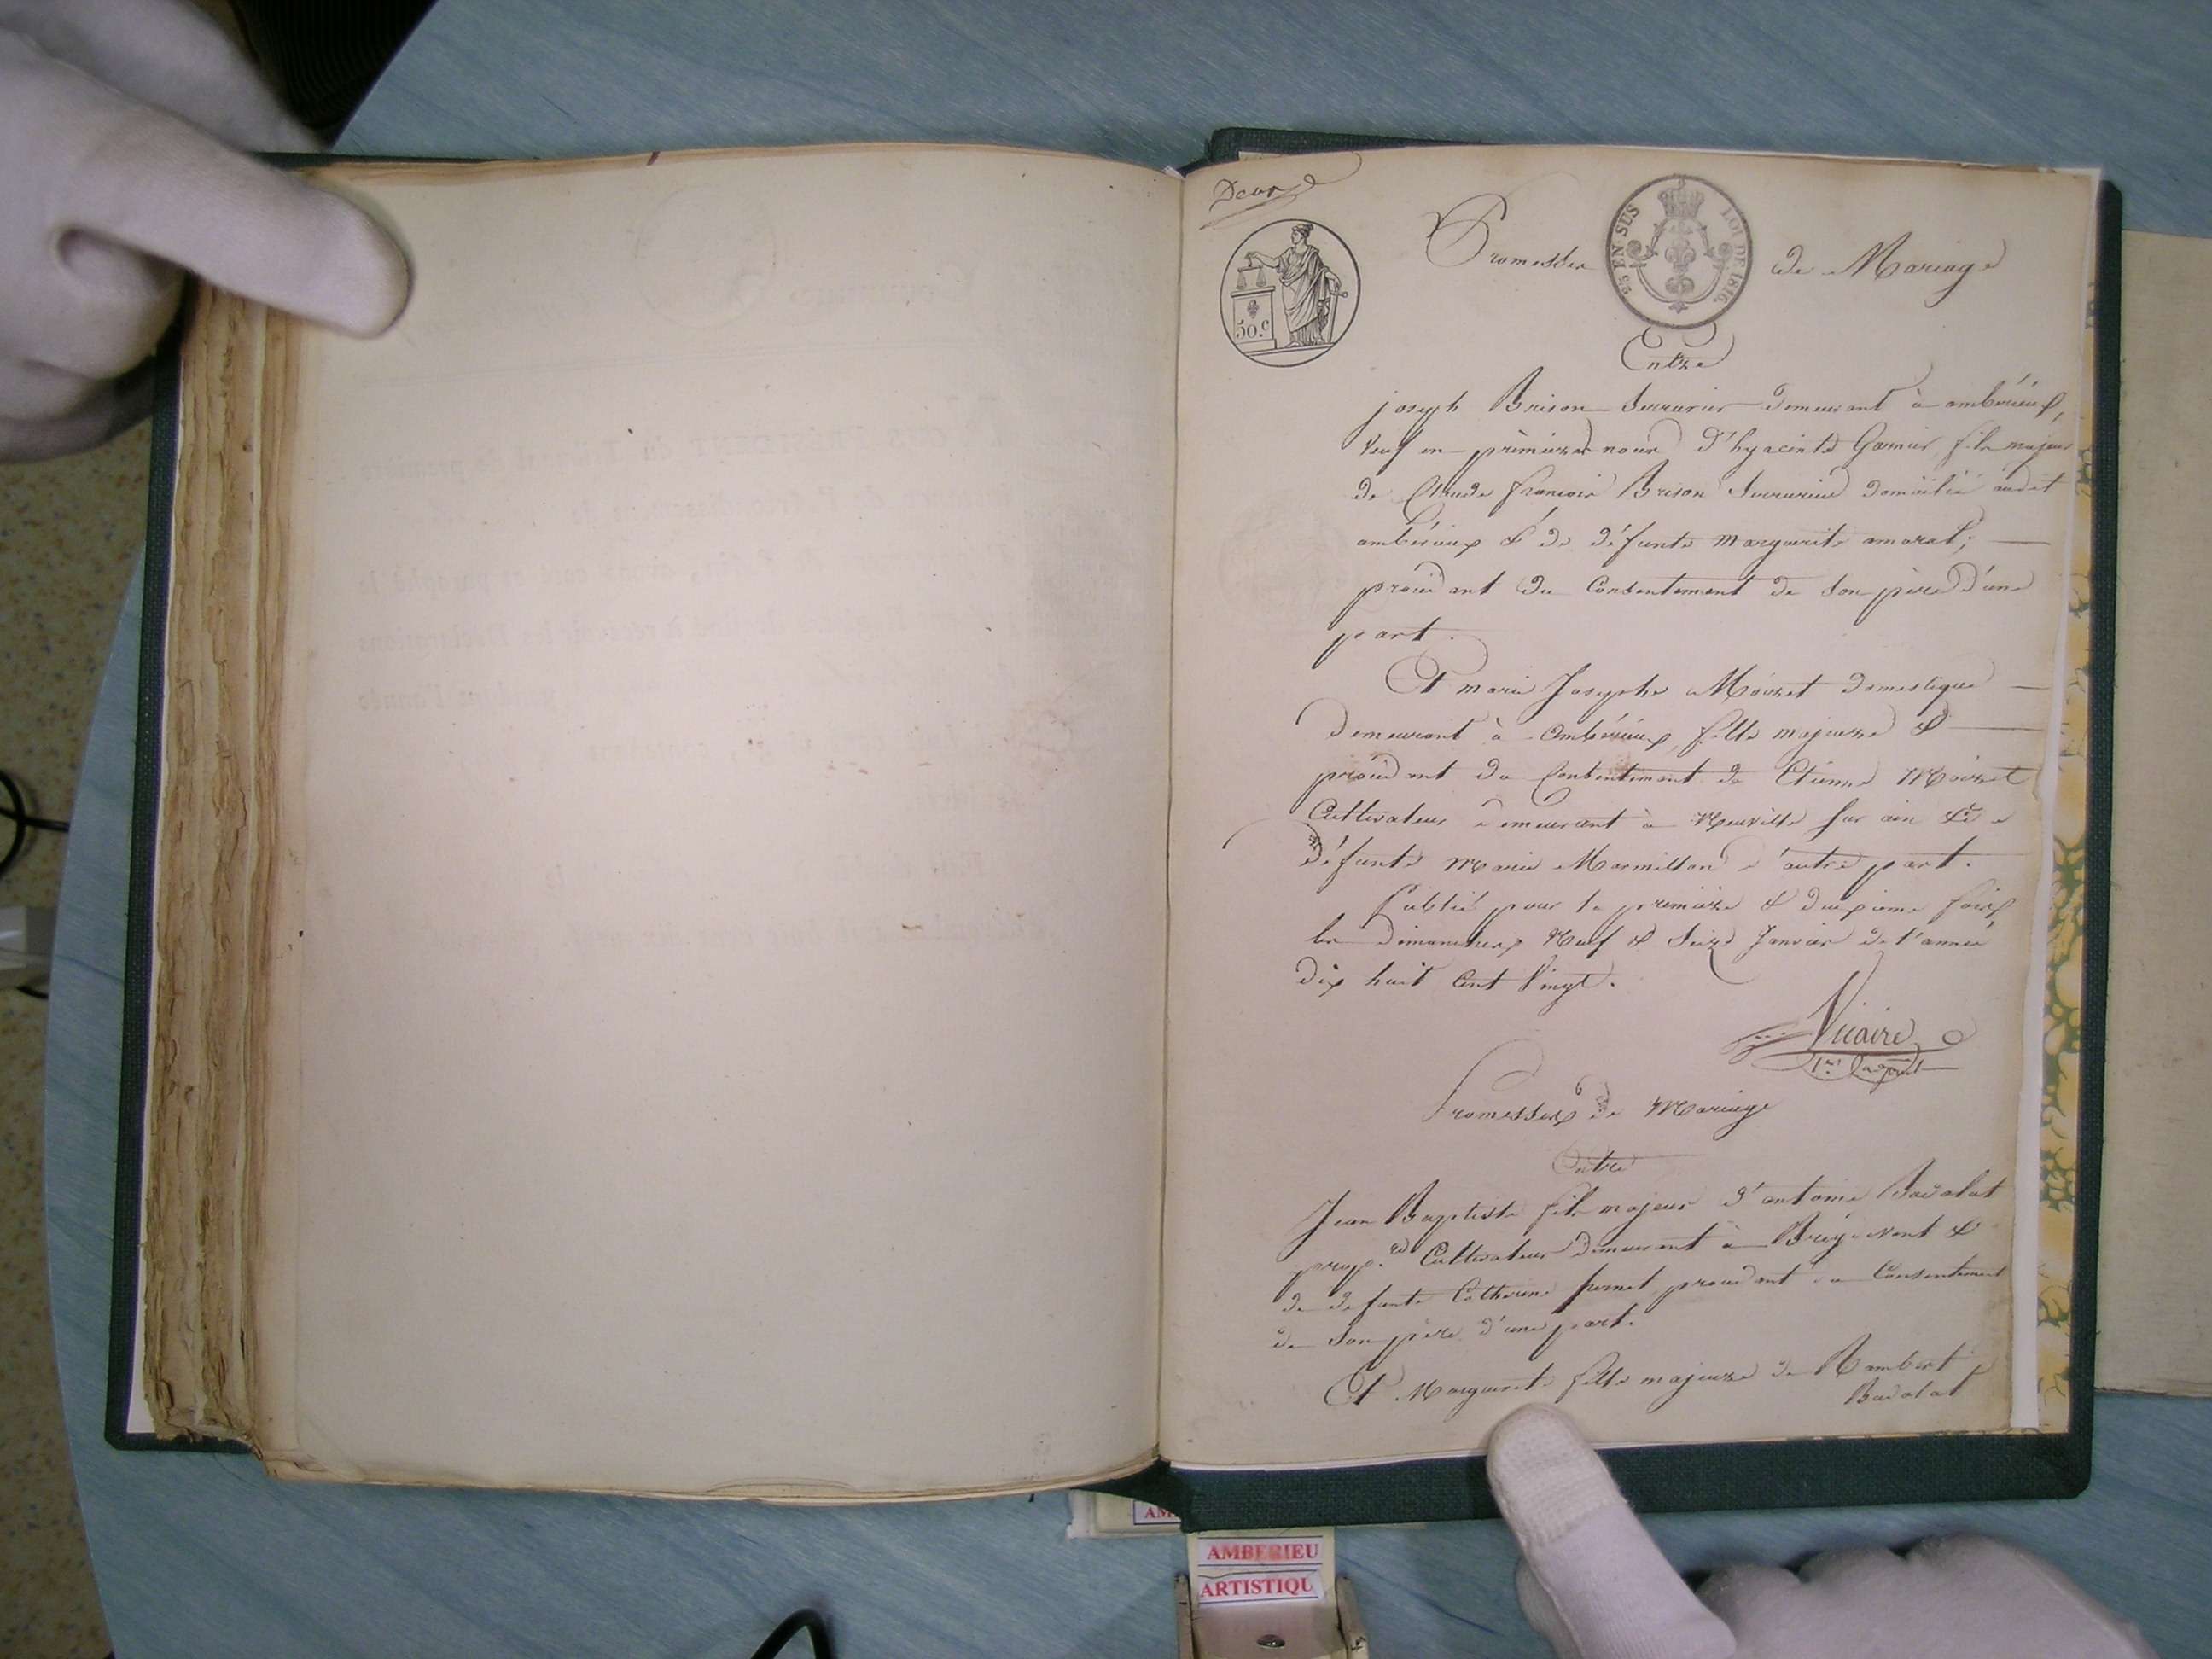 Deux
Promesses de Mariage
25 EN SUS LOI DE 1816.
50.c
Entre
joseph Brison Serrurier demeurant à ambérieux,
Veuf en prèmieres noces d'hyacinte Garnier, fils majeur
de Claude françois Brison Serrurier domicilié audit
ambérieux & de défunte marguerite amarat;
procédant du Consentement de son père d'une
part.
Et marie Josephe Moiret domestique
demeurant à ambérieux, fille majeure &
procédant du Consentement de Etienne Moiret
Cultivateur demeurant à Neuville sur ain & de
défunte Marie Marmillon d'autre part.
Publié pour la première & deuxieme foix
les dimanches Neuf & Seize Janvier de l'année
dix huit Cent Vingt.
Vicaire
1er adjoint
Promesses de Mariage
Entre
Jean Baptiste fils majeur d'antoine Bacalat
prop.re Cultivateur demeurant à Breydevent &
de defunte Catherine furnet, procédant du Consentement
de Son père d'une part.
Et Marguerite fille majeure de Rambert
Bacalat
AMBERIEU
ARTISTIQU